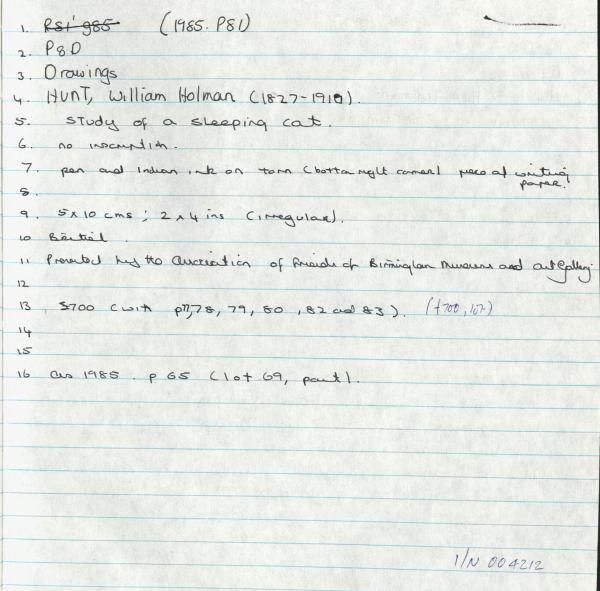 1. P81'985 (1985.P81)
2. P&D
3. Drawings
4. HUNT, William Holman (1827-1910).
5. Study of a sleeping cat.
6. no inscription.
7. pen and Indian ink on torn (bottom right corner) piece of writing
paper.
8.
9. 5x10 cms; 2x4 ins (irregular).
10 British.
11 Presented by the Association of Friends of Birmingham Museums and Art Gallery
12
13 £700 (with p77,78, 79, 80, 82 and 83). (£700,
14
15
16 1985. p 65 (lot 69, part).
I/N 004212